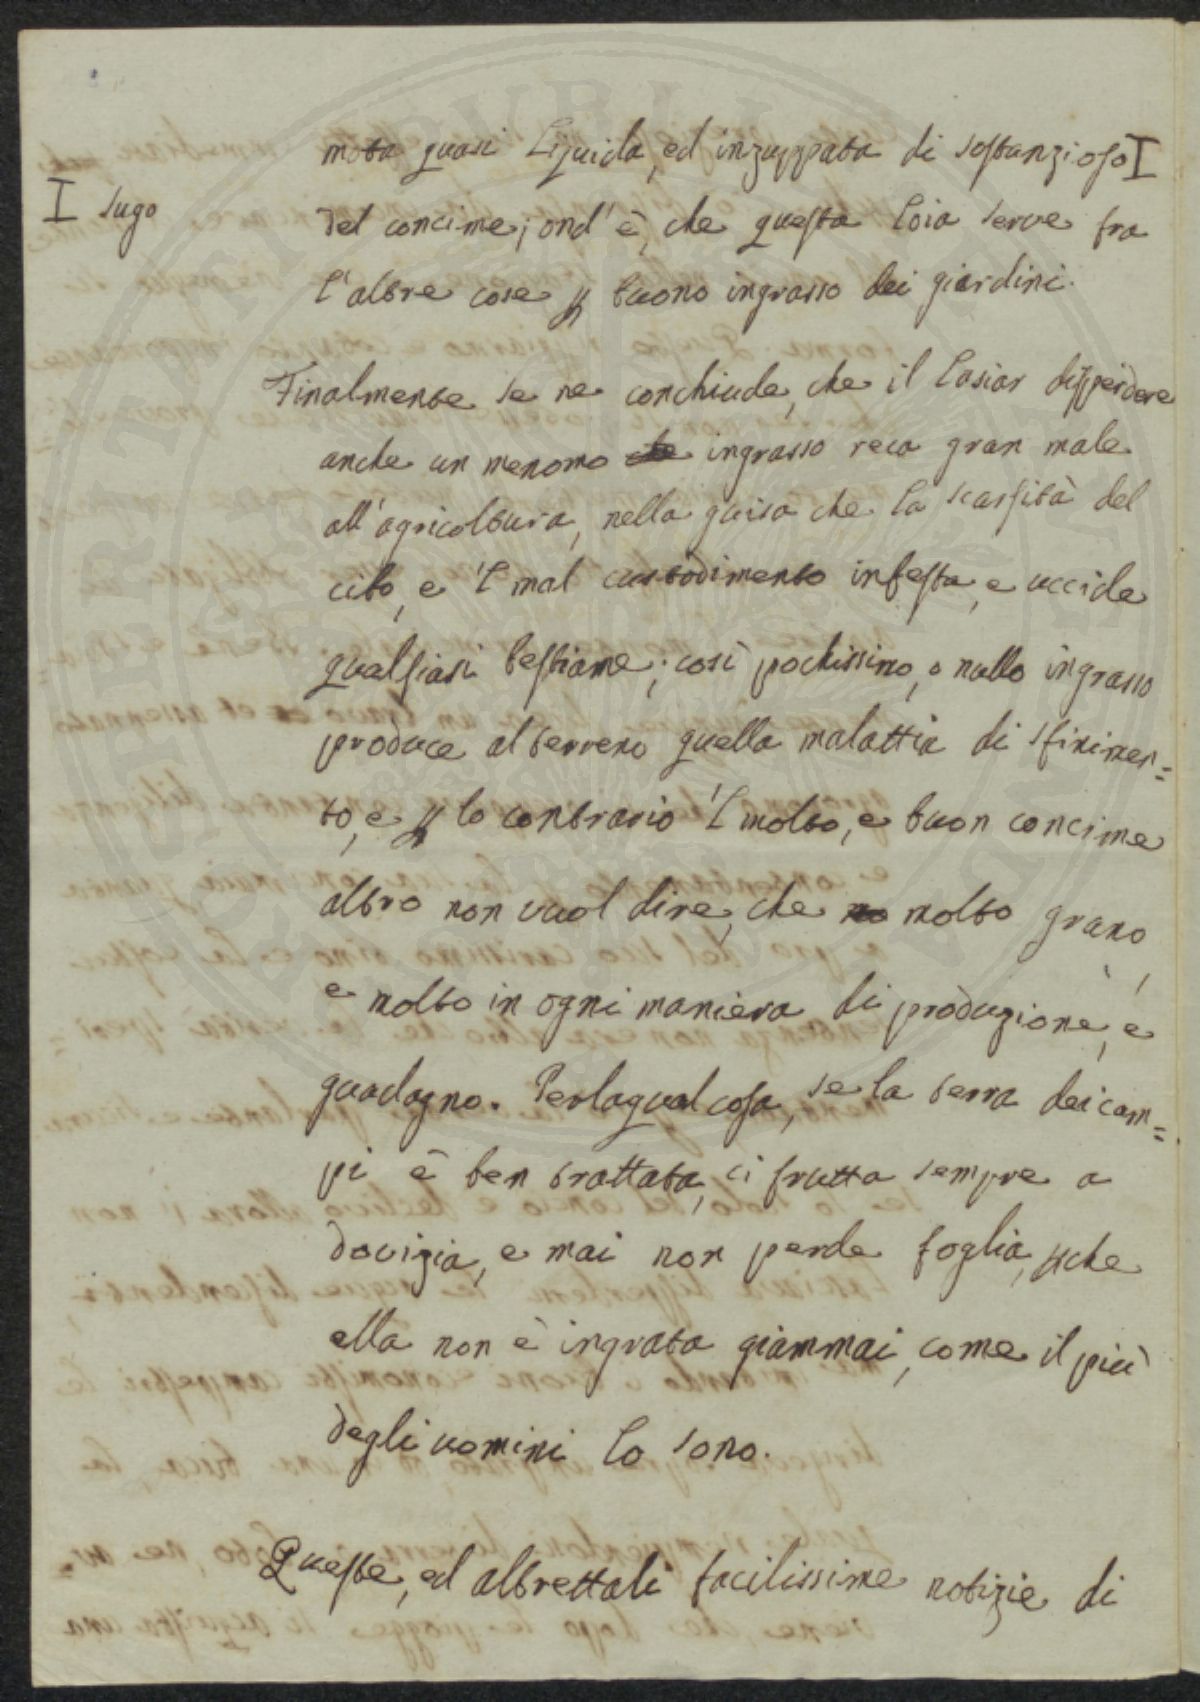 mota quasi liquida, ed inzuppata di sostanzioso I
I sugo
del concime; ond' è, che questa loia serve fra
l'altre cose p buono ingrasso dei giardini.
Finalmente se ne conchiude, che il lasiar disperdere
anche un menomo che ingrasso reca gran male
all'agricoltura, nella guisa che la scarsità del
cibo, e 'l mal custodimento infesta, e uccide
qualsiasi bestiame; così pochissimo, o nullo ingrasso
produce al terreno quella malattia di sfinimen=
to, e p lo contrario 'l molto, e buon concime
altro non vuol dire, che mo molto grano,
e molto in ogni maniera di produzione, e
guadagno. Perlaqualcosa, se la terra dei cam=
pi è ben trattata, ci frutta sempre a
dovizia, e mai non perde foglia, pche
ella non è ingrata giammai, come il più
degli uomini lo sono.
Queste, ed altrettali facilissime notizie di